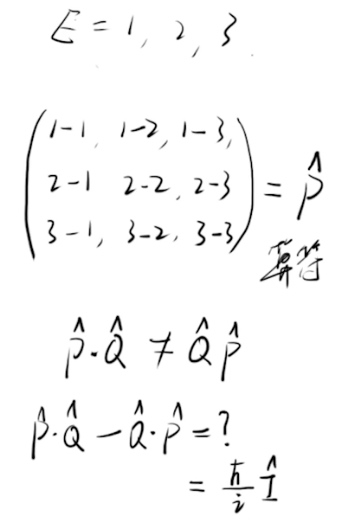 E = 1, 2, 3.
1-1, 1-2, 1-3,
2-1 2-2, 2-3 = P̂
3-1, 3-2, 3-3
算符
P̂·Q̂ ≠ Q̂P̂
P̂·Q̂ - Q̂·P̂ = ?
= ħ/i Î